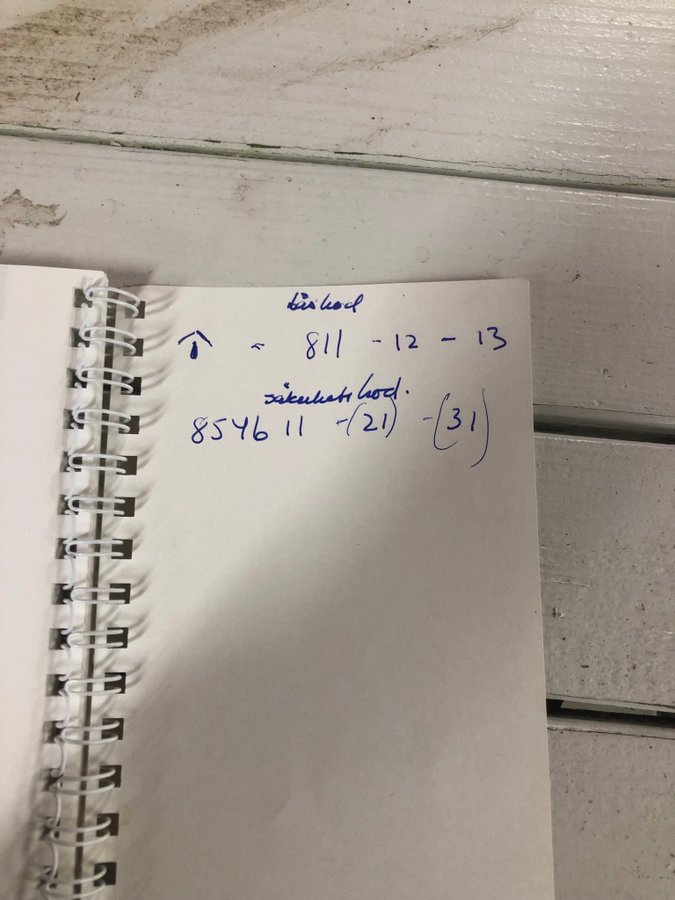 låskod
⇑ - 811 - 12 - 13
säkerhetskod.
854611 -(21) -(31)